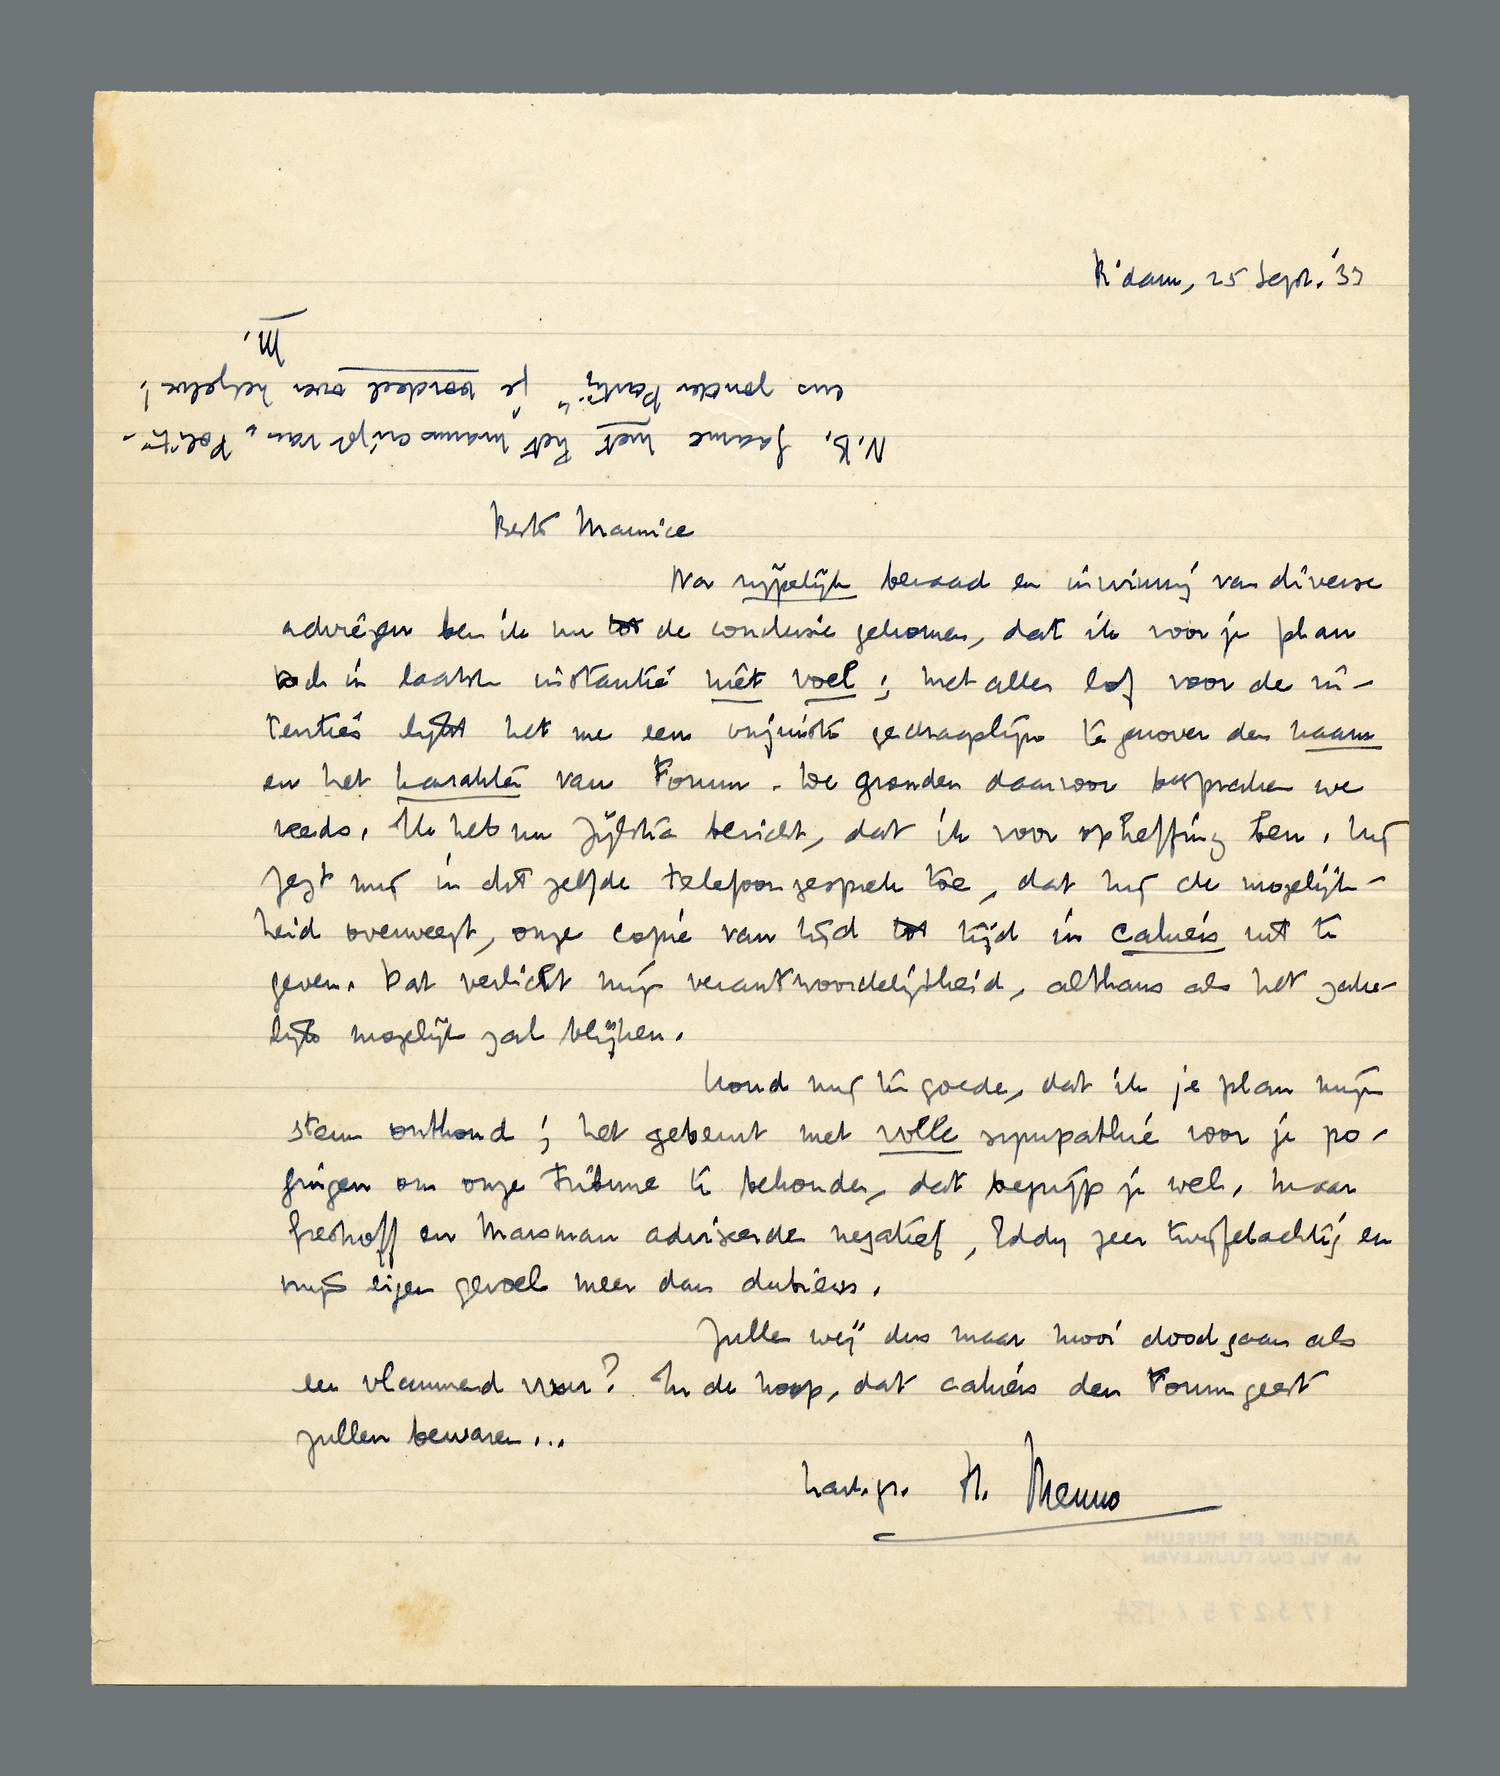 R'dam, 25 Sept. '33
N.B. Gaarne met het manuscript van „Politi-
cus zonder Partij" je oordeel over hetzelve!
M.
Beste Maurice
Na rijpelijk beraad en inwinning van diverse
adviezen ben ik nu tot de conclusie gekomen, dat ik voor je plan
toch in laatste instantie niet voel; met alle lof voor de in-
tenties lijkt het me een onjuiste gedragslijn tegenover den naam
en het karakter van Forum. De gronden daarvoor bespraken we
reeds. Ik heb nu Zijlstra bericht, dat ik voor opheffing ben. Hij
zegt mij in dat zelfde telefoongesprek toe, dat hij de mogelijk-
heid overweegt, onze copie van tijd tot tijd in cahiers uit te
geven. Dat verlicht mijn verantwoordelijkheid, althans als het zake-
lijk mogelijk zal blijken.
Houd mij ten goede, dat ik je plan mijn
stem onthoud; het gebeurt met volle sympathie voor je po-
gingen om onze tribune te behouden, dat begrijp je wel. Maar
Greshoff en Marsman adviseerden negatief, Eddy zeer twijfelachtig en
mijn eigen gevoel meer dan dubieus.
Zullen wij dus maar mooi doodgaan als
een vlammend vuur? In de hoop, dat cahiers den Forumgeest
zullen bewaren...
hart. gr. tt. Menno
ARCHIEF EN MUSEUM
VH VL CULTUURLEVEN
173275 / 134